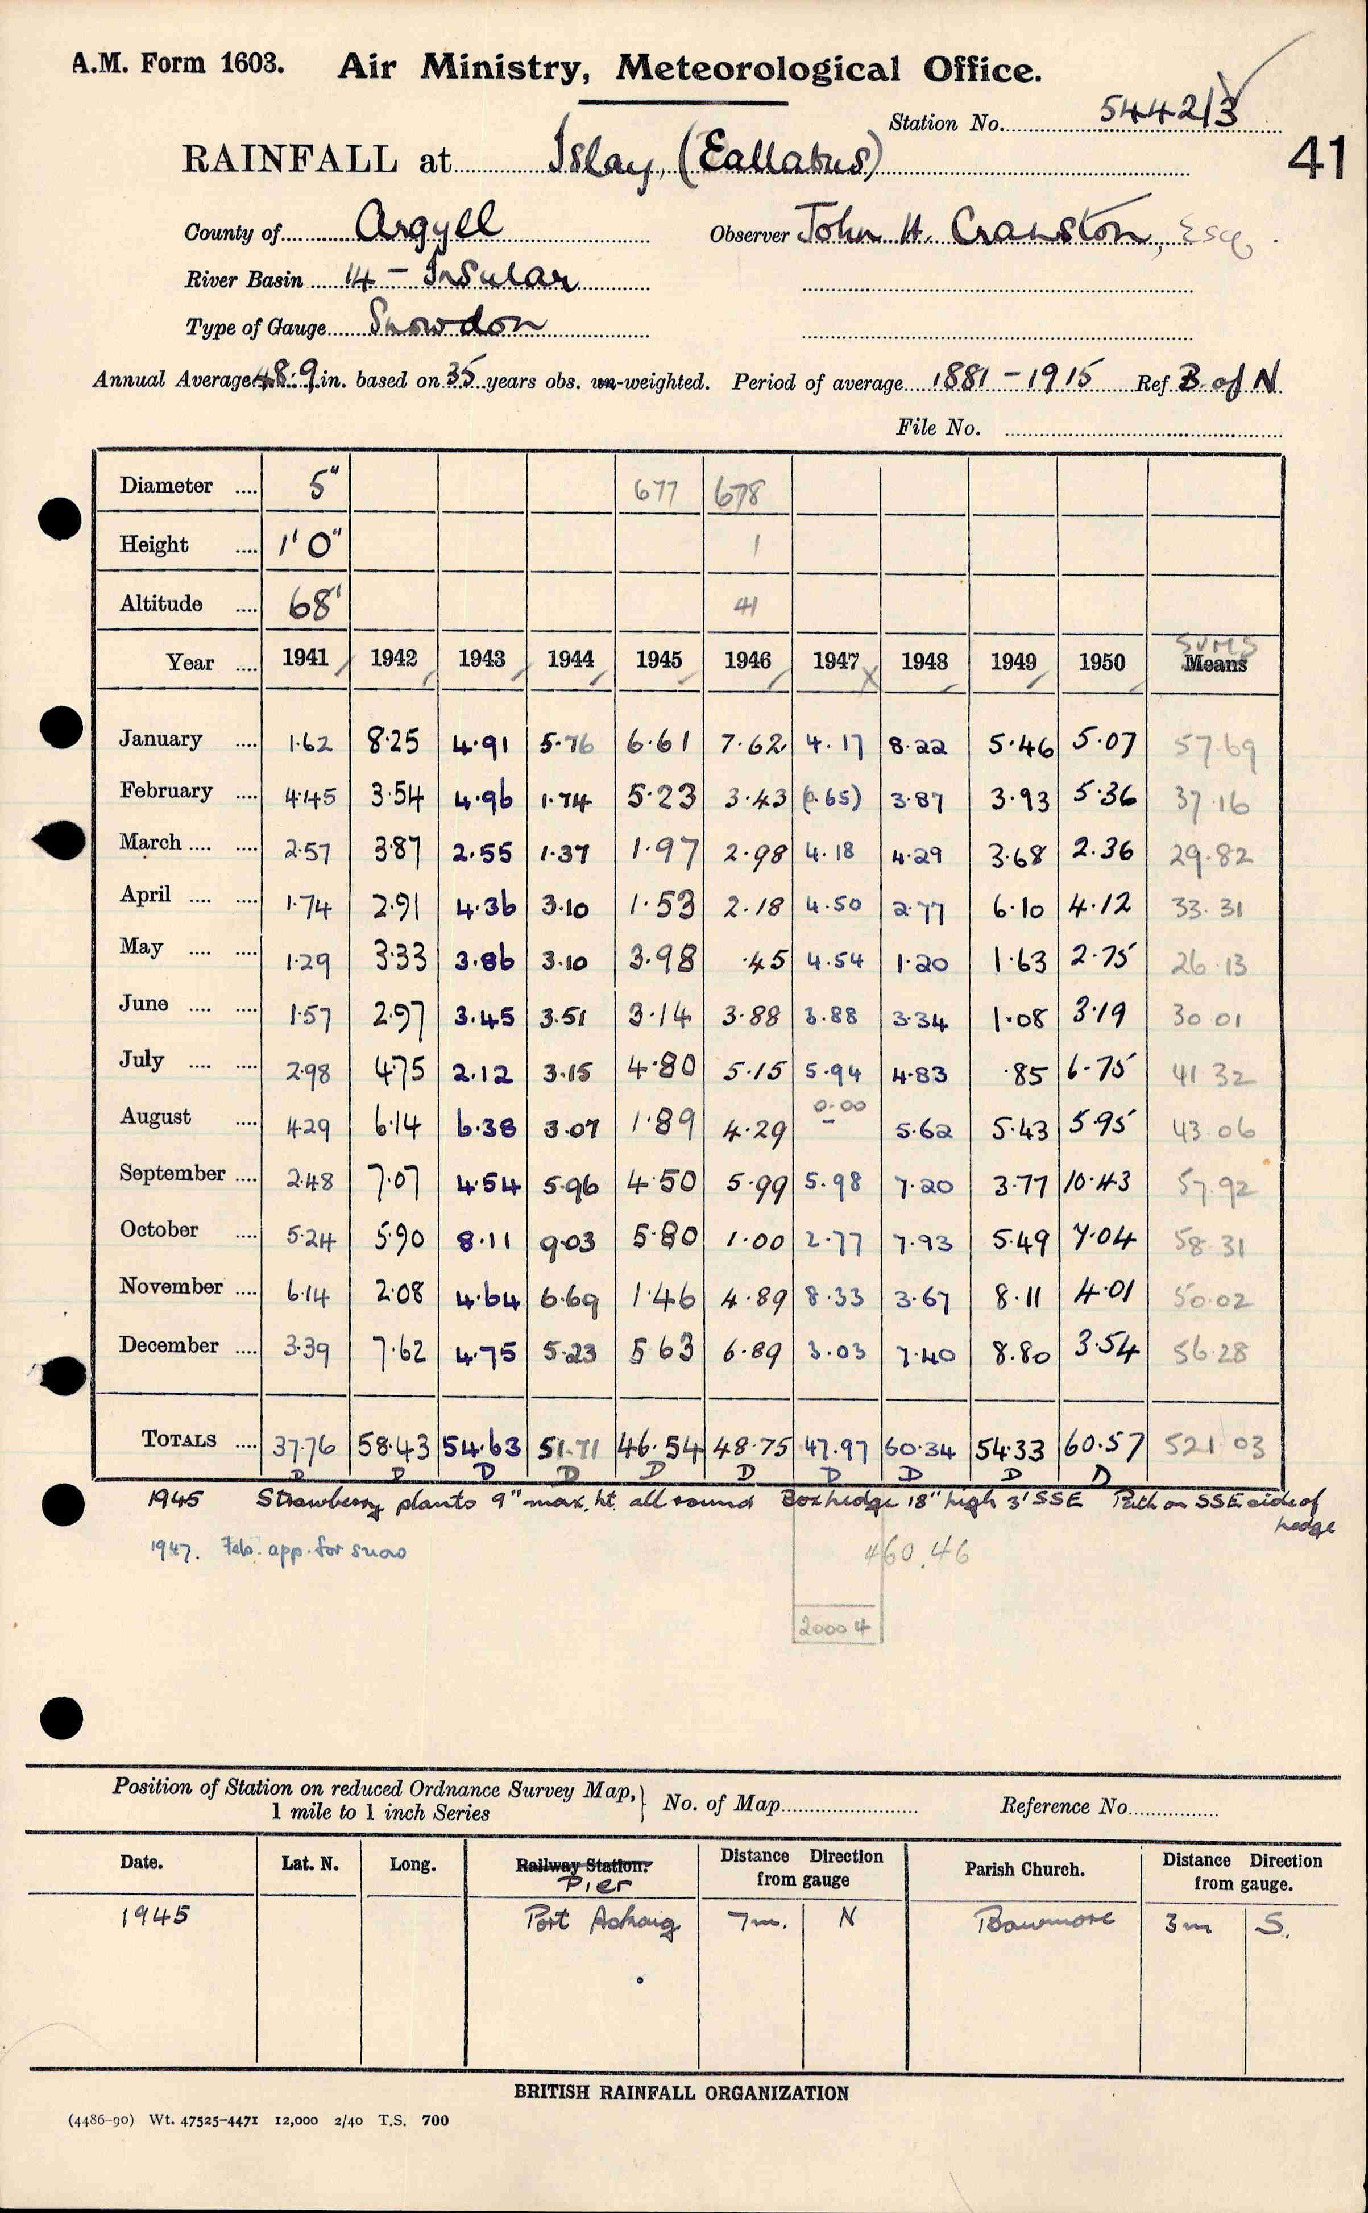 A.M. Form 1603. Air Ministry, Meteorological Office.
Station No. 5442/3
41
RAINFALL at Islay, (Eallabus)
County of Argyll Observer John H. Cranston, Esq.
River Basin 14 - Insular
Type of Gauge Snowdon
Annual Average 48.9 in. based on 35 years obs. un-weighted. Period of average 1881-1915 Ref B. of N.
File No.
Diameter .... 5" 677 678
Height .... 1' 0" 1
Altitude .... 68' 41
Year .... 1941 1942 1943 1944 1945 1946 1947 X 1948 1949 1950 SUMS Means
January .... 1.62 8.25 4.91 5.76 6.61 7.62 4.17 8.22 5.46 5.07 57.69
February .... 4.45 3.54 4.96 1.74 5.23 3.43 (0.65) 3.87 3.93 5.36 37.16
March .... .... 2.57 3.87 2.55 1.37 1.97 2.98 4.18 4.29 3.68 2.36 29.82
April .... .... 1.74 2.91 4.36 3.10 1.53 2.18 4.50 2.77 6.10 4.12 33.31
May .... .... 1.29 3.33 3.86 3.10 3.98 .45 4.54 1.20 1.63 2.75 26.13
June .... .... 1.57 2.97 3.45 3.51 3.14 3.88 3.88 3.34 1.08 3.19 30.01
July .... .... 2.98 4.75 2.12 3.15 4.80 5.15 5.94 4.83 .85 6.75 41.32
August .... 4.29 6.14 6.38 3.07 1.89 4.29 0.00 - 5.62 5.43 5.95 43.06
September .... 2.48 7.07 4.54 5.96 4.50 5.99 5.98 7.20 3.77 10.43 57.92
October .... 5.24 5.90 8.11 9.03 5.80 1.00 2.77 7.93 5.49 7.04 58.31
November .... 6.14 2.08 4.64 6.69 1.46 4.89 8.33 3.67 8.11 4.01 50.02
December .... 3.39 7.62 4.75 5.23 5.63 6.89 3.03 7.40 8.80 3.54 56.28
TOTALS .... 37.76 58.43 54.63 51.71 46.54 48.75 47.97 60.34 54.33 60.57 521.03
D D D D D D D D D D
1945 Strawberry plants 9" max. ht. all round Box hedge 18" high 3' SSE Path on SSE side of
hedge
1947. Feb. app. for snow 460.46
20004
Position of Station on reduced Ordnance Survey Map,
1 mile to 1 inch Series } No. of Map Reference No.
Date. Lat. N. Long. Railway Station. Pier Distance Direction from gauge Parish Church. Distance Direction from gauge.
1945 Port Askaig 7m. N Bowmore 3m S.
BRITISH RAINFALL ORGANIZATION
(4486-90) Wt. 47525-4471 12,000 2/40 T.S. 700